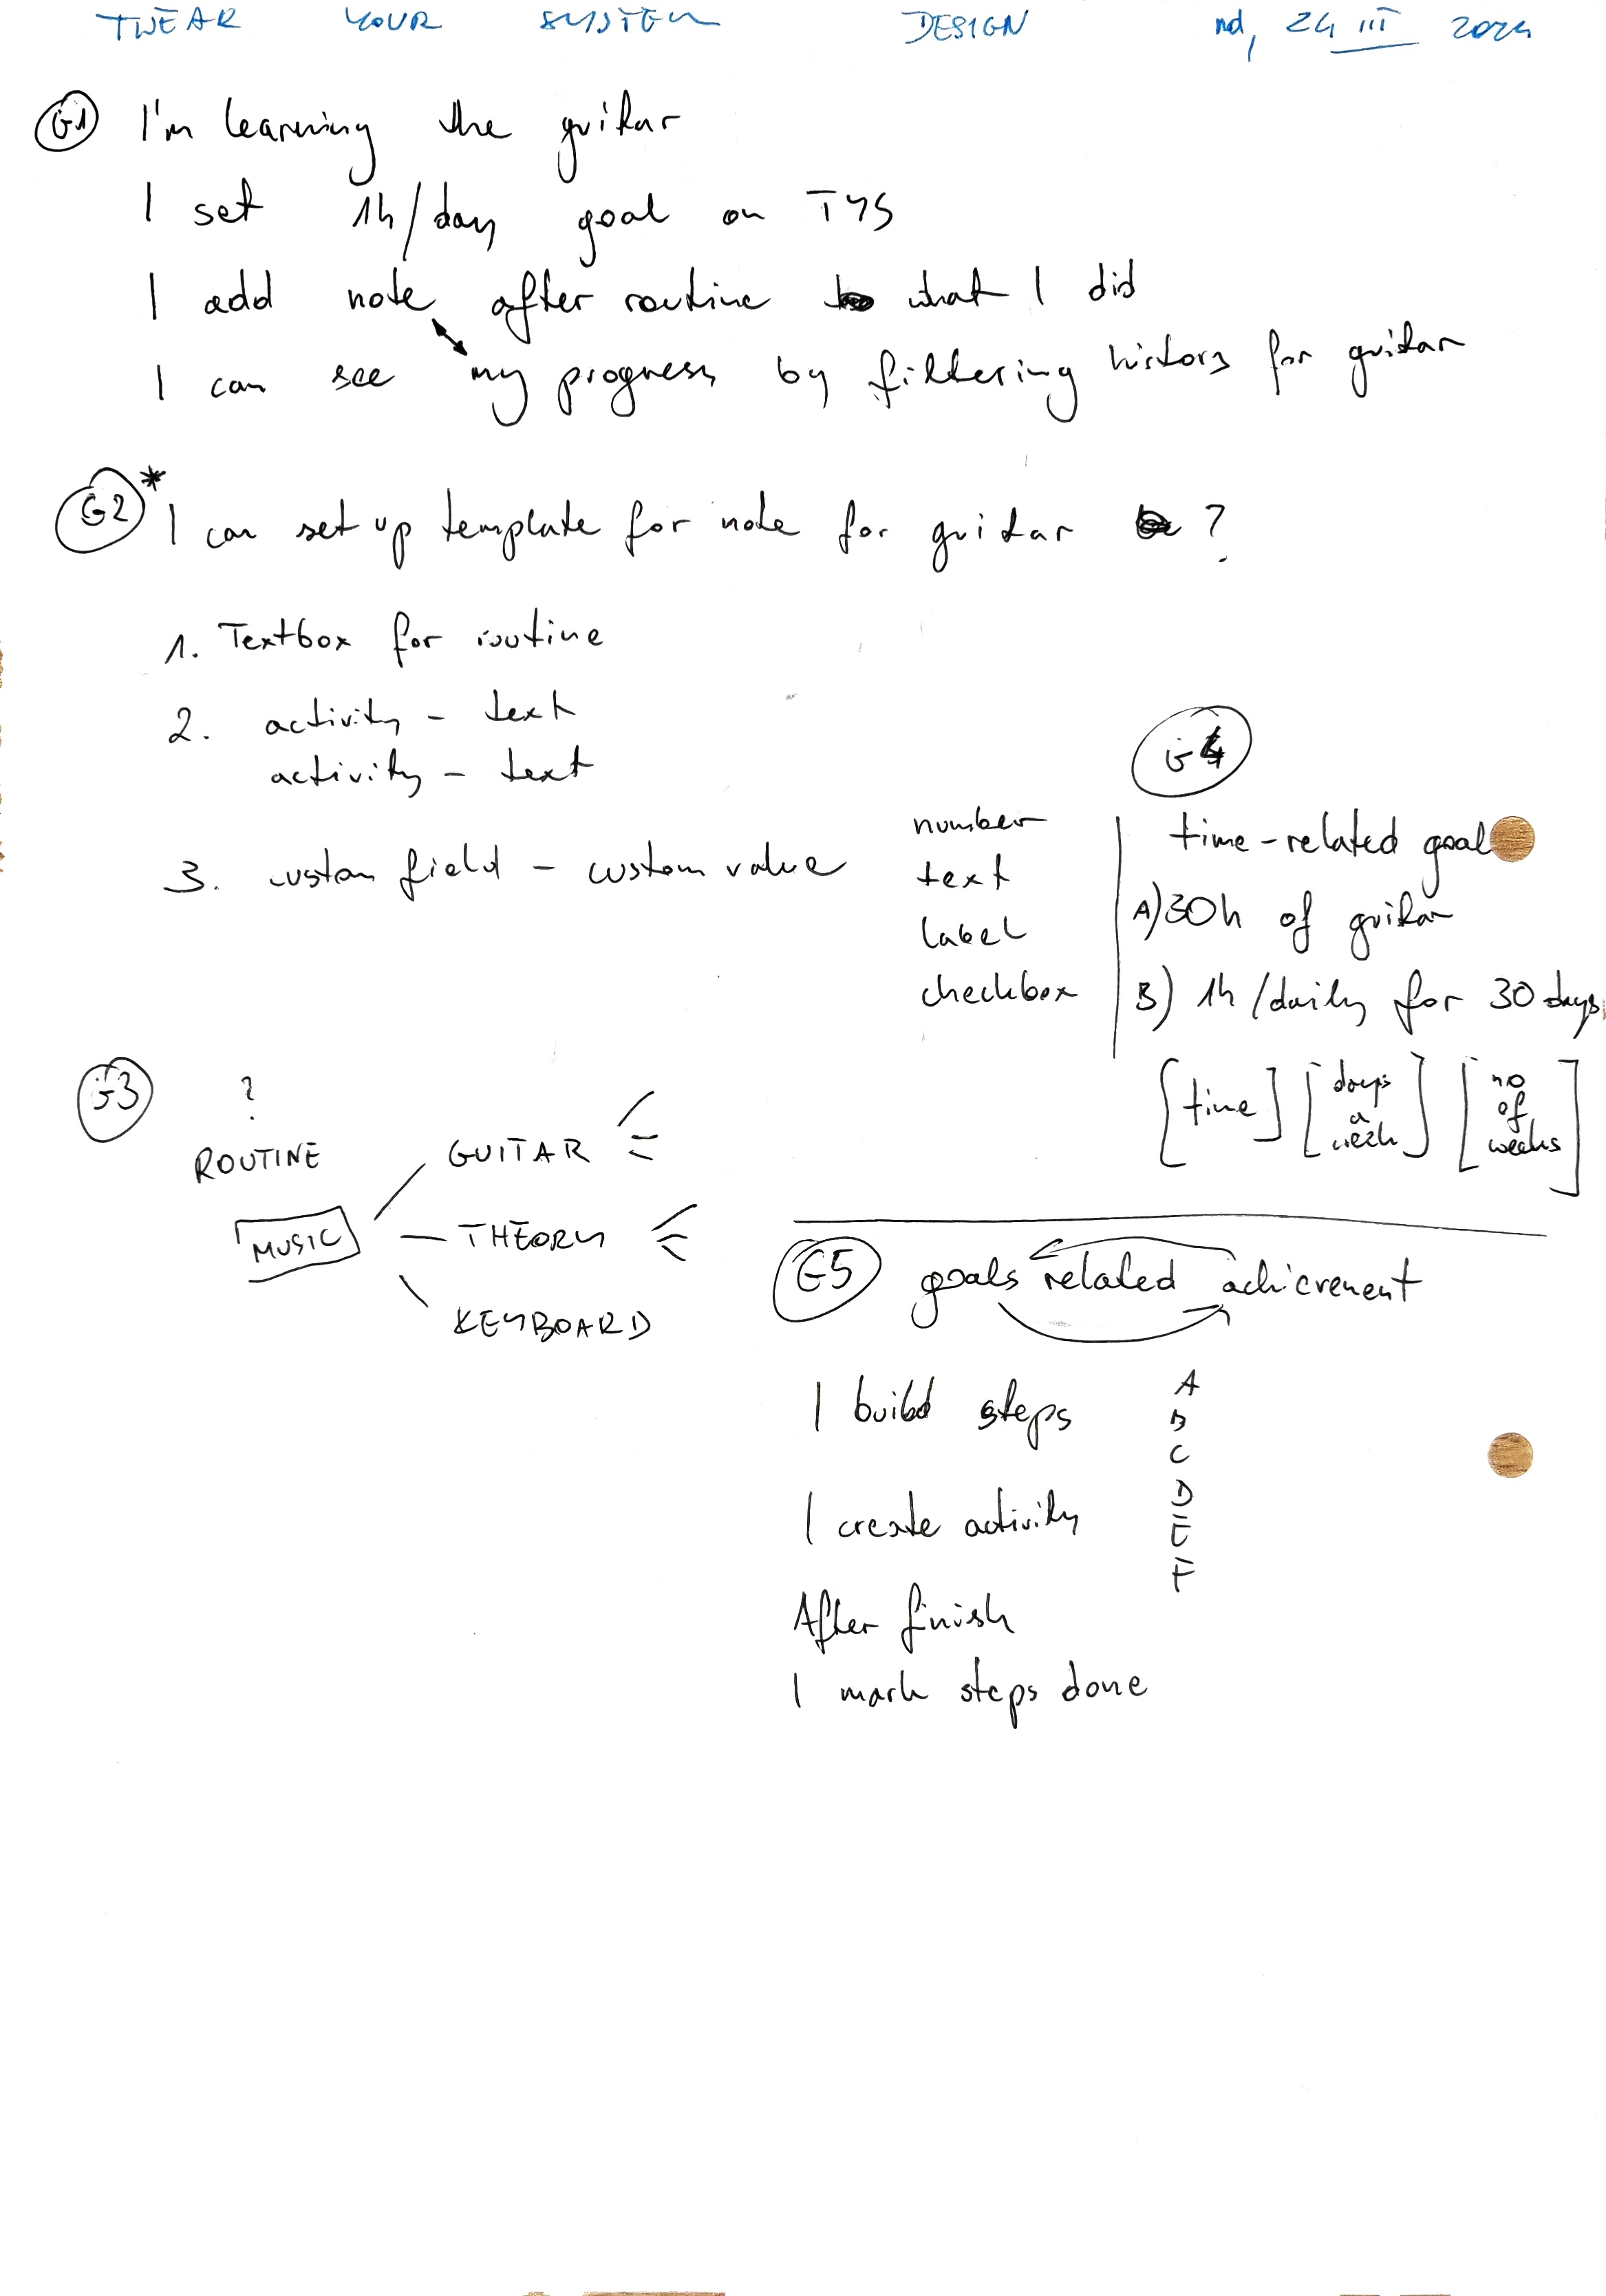 TWEAK YOUR SYSTEM DESIGN nd, 24 III 2024
G1 I'm learning the guitar
I set 1h/day goal on TYS
I add note after routine what I did
I can see my progress by filtering history for guitar
G2 * I can set up template for note for guitar ?
1. Textbox for routine
2. activity - text
activity - text
3. custom field - custom value
number
text
label
checkbox
G4
time-related goal
A) 30h of guitar
B) 1h/daily for 30 days
[time] [days a week] [no of weeks]
G3
?
ROUTINE
MUSIC
GUITAR
THEORY
KEYBOARD
G5 goals related achievement
I build steps
A
B
C
D
E
F
I create activity
After finish
I mark steps done